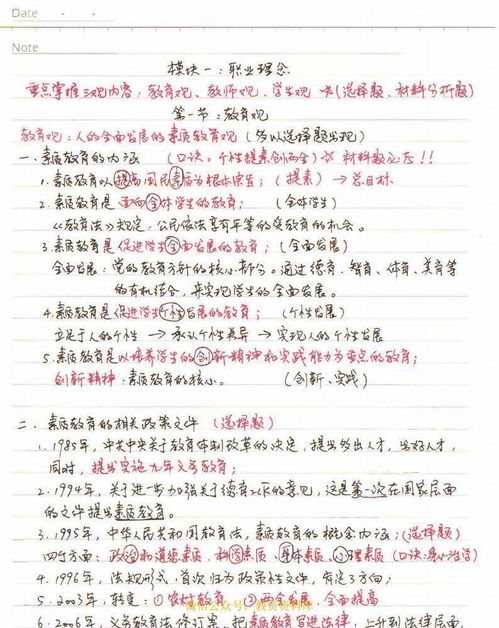 Date
Note
模块一：职业理念
重点掌握三观内容：教育观、教师观、学生观 ☆(选择题、材料分析题)
第一节：教育观
教育观：人的全面发展的素质教育观（多以选择题出现）
一、素质教育的内涵 （口诀。个性提素创两全）☆ 材料题必考！！
1. 素质教育以提高国民素质为根本宗旨；（提素）→总目标
2. 素质教育是面向全体学生的教育；（全体学生）
《教育法》规定，公民依法享有平等的受教育的机会。
3. 素质教育是促进学生全面发展的教育；（全面发展）
全面发展：党的教育方针的核心部分。通过德育、智育、体育、美育等
的有机结合，来实现学生的全面发展。
4. 素质教育是促进学生个性发展的教育；（个性发展）
立足于人的个性 → 承认个性差异 → 实现人的个性发展
5. 素质教育是以培养学生的创新精神和实践能力为重点的教育；
创新精神：素质教育的核心。（创新、实践）
二、素质教育的相关政策文件（选择题）
1. 1985年，中共中央关于教育体制改革的决定，提出多出人才，出好人才，
同时，提出实施九年义务教育；
2. 1994年，关于进一步加强关于德育工作的意见，这是第一次在国家层面
的文件提出素质教育。
3. 1995年，中华人民共和国教育法，素质教育的概念内涵；（选择题）
四个方面：政治和道德素质、科学素质、身体素质、心理素质（口诀：身心
4. 1996年，法规形式，首次归为政策性文件，
5. 2003年，转变：①农村教育 ②两全发展、全面提高
微信公众号：教资资料库
6. 2006年，义务教育法修订案，把素质教育写进法律，上升到法律层面，